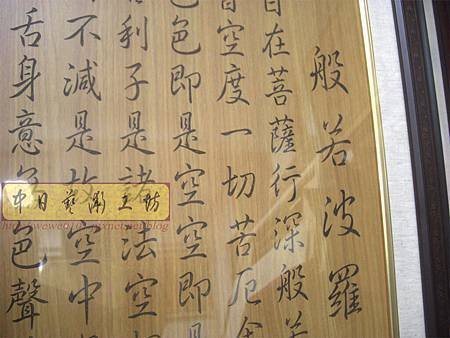 般若波羅
自在菩薩行深般若
皆空度一切苦厄舍
色色即是空空即是
利子是諸法空
不減是故空中
舌身意色聲
中日藝彫工坊